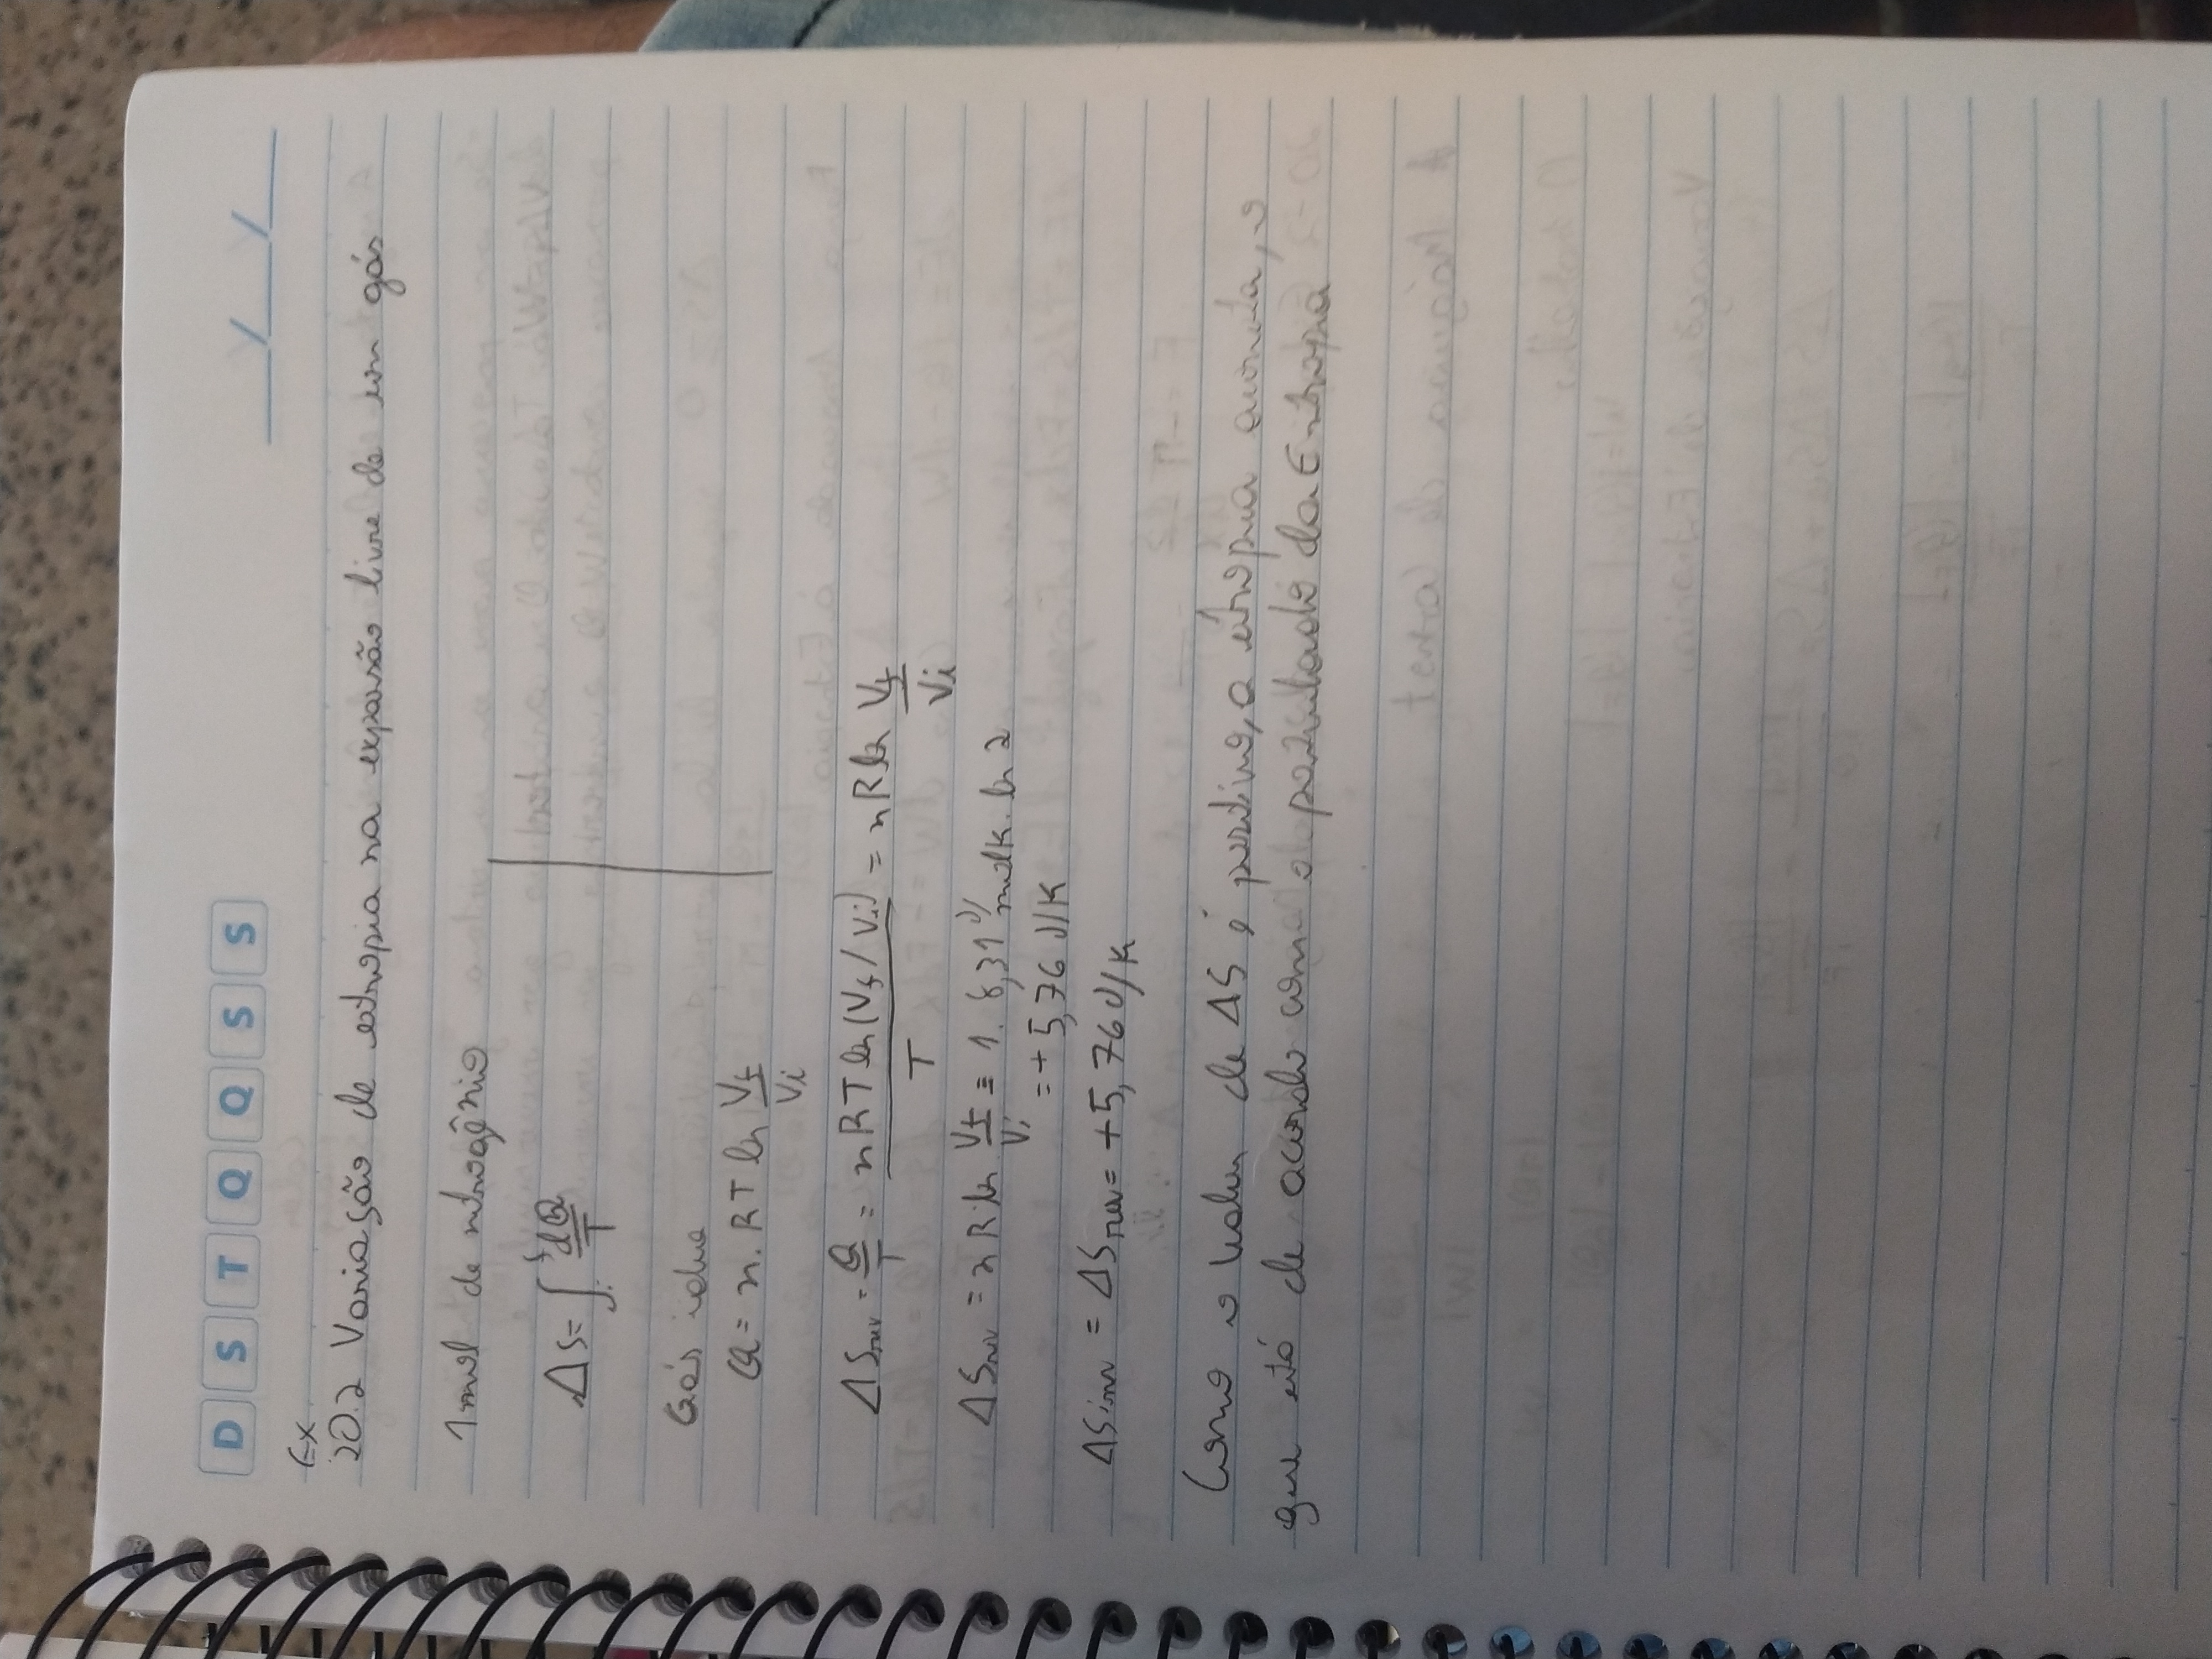 D S T Q Q S S
Ex
20.2 Variação de entropia na expansão livre de um gás
1 mol de nitrogênio
ΔS = ∫ᵢᶠ dQ/T
Gás ideal
Q = n.RT ln Vf/Vi
ΔSrev = Q/T = nRT ln(Vf/Vi)/T = nR ln Vf/Vi
ΔSrev = nR.ln Vf/Vi = 1. 8,31 J/molK. ln 2
= + 5,76 J/K
ΔSirrev = ΔSrev = +5,76 J/K
Como o valor de ΔS é positivo, a entropia aumenta, o
que está de acordo com o postulado da Entropia